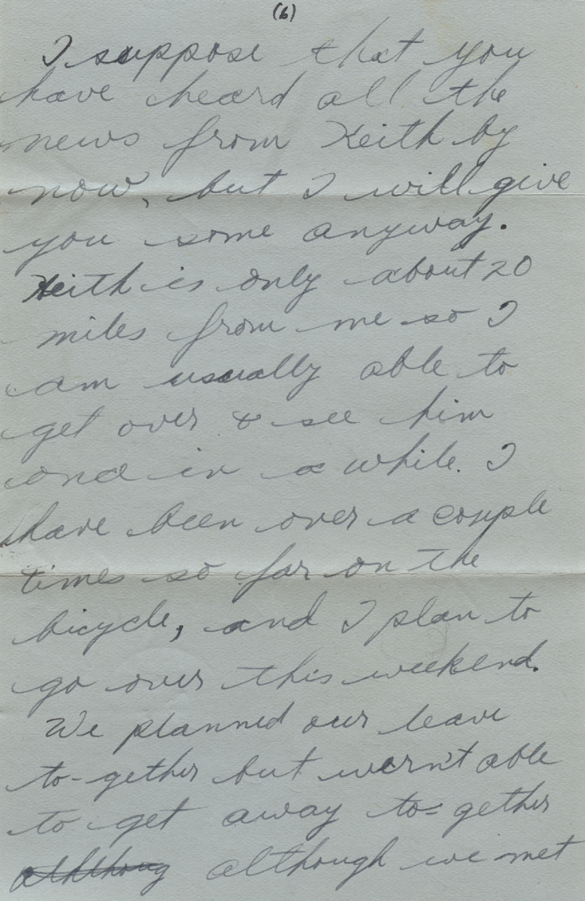 (6)
I suppose that you
have heard all the
news from Keith by
now, but I will give
you some anyway.
Keith is only about 20
miles from me so I
am usually able to
get over & see him
once in a while. I
have been over a couple
times so far on the
bicycle, and I plan to
go over this weekend.
We planned our leave
to-gether but wern't able
to get away to-gether
although we met